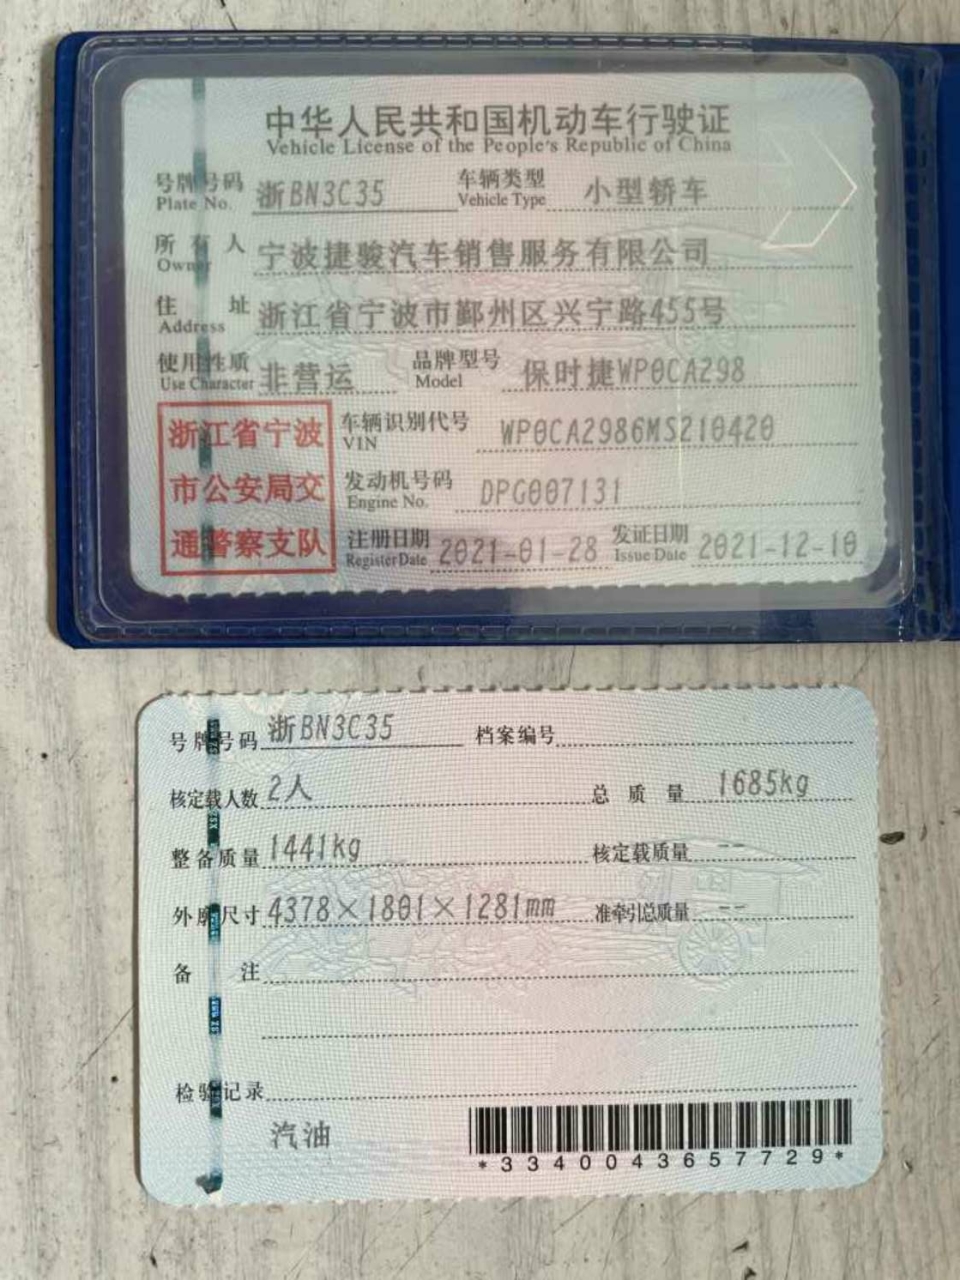 中华人民共和国机动车行驶证
Vehicle License of the People's Republic of China
号牌号码 浙BN3C35 车辆类型 小型轿车
Plate No. Vehicle Type
所有人 宁波捷骏汽车销售服务有限公司
Owner
住址 浙江省宁波市鄞州区兴宁路455号
Address
使用性质 非营运 品牌型号 保时捷WP0CA298
Use Character Model
浙江省宁波
市公安局交
通警察支队
车辆识别代号 WP0CA2986MS210420
VIN
发动机号码 DPG007131
Engine No.
注册日期 2021-01-28 发证日期 2021-12-10
Register Date Issue Date
号牌号码 浙BN3C35 档案编号
核定载人数 2人 总质量 1685kg
整备质量 1441kg 核定载质量 --
外廓尺寸 4378×1801×1281mm 准牵引总质量 --
备注
检验记录
汽油
*3340043657729*